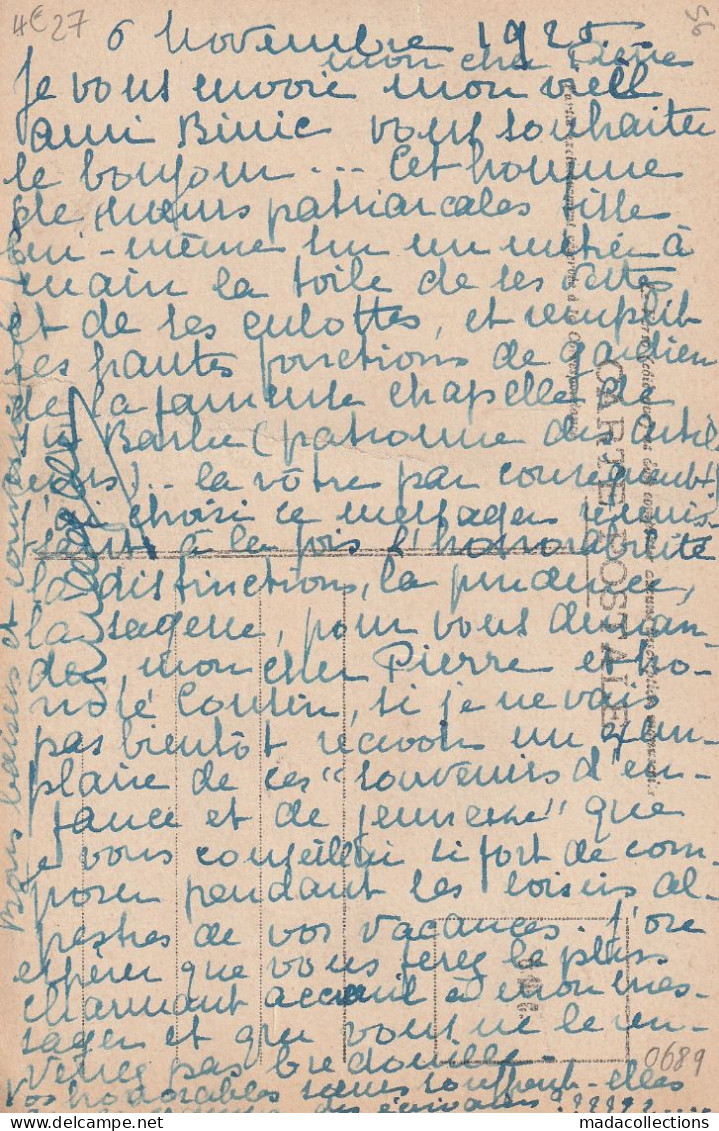 4€27
56
6 novembre 1925
mon cher Pierre
Je vous envoie mon vieil
ami Binic vous souhaiter
le bonjour ... Cet homme
de mœurs patriarcales tisse
lui-même sur un métier à
main la toile de ses vestes
et de ses culottes, et remplit
les hautes fonctions de gardien
de la fameuse chapelle de
Ste Barbe (patronne des artil-
leurs)... la vôtre par conséquent!
J'ai choisi ce messager réunis-
sant à la fois l'honorabilité
la distinction, la prudence,
la sagesse, pour vous deman-
der, mon cher Pierre et ho-
noré Cousin, si je ne vais
pas bientôt recevoir un exem-
plaire de ces "souvenirs d'en-
fance et de jeunesse" que
je vous conseillai si fort de com-
poser pendant les loisirs al-
pestres de vos vacances. J'ose
espérer que vous ferez le plus
charmant accueil à mon mes-
sager et que vous ne le ren-
verrez pas bredouille.
Vos honorables sœurs souffrent-elles
des écrivains ??????....
Bons baisers et
CARTE POSTALE
0689
www.madacollections.com